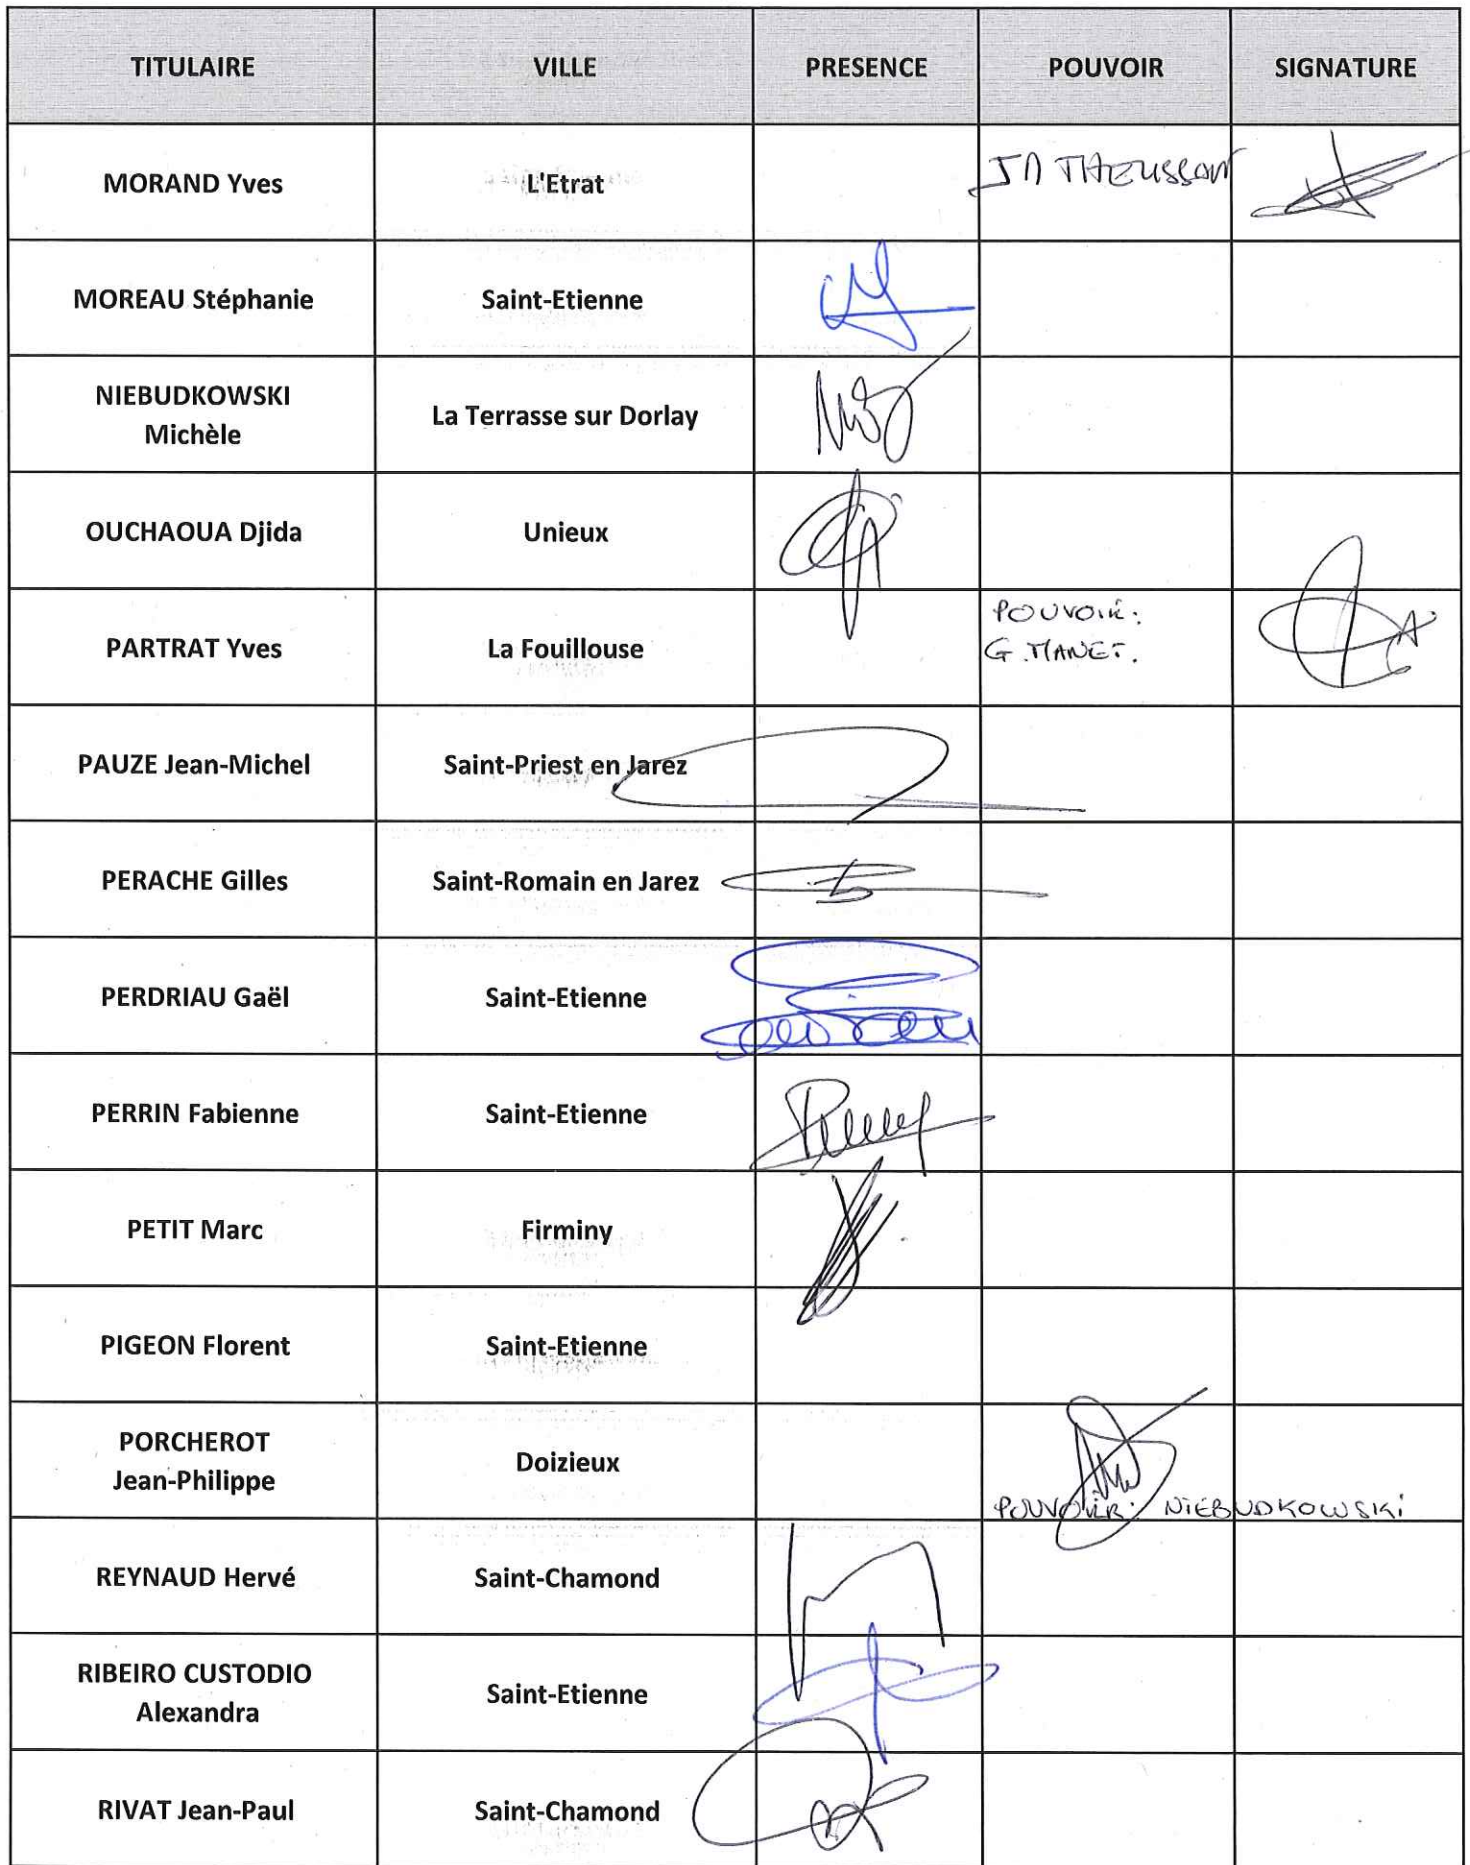 TITULAIRE VILLE PRESENCE POUVOIR SIGNATURE
MORAND Yves L'Etrat
MOREAU Stéphanie Saint-Etienne
NIEBUDKOWSKI
Michèle La Terrasse sur Dorlay
OUCHAOUA Djida Unieux
PARTRAT Yves La Fouillouse POUVOIR:
G. MANET.
PAUZE Jean-Michel Saint-Priest en Jarez
PERACHE Gilles Saint-Romain en Jarez
PERDRIAU Gaël Saint-Etienne
PERRIN Fabienne Saint-Etienne
PETIT Marc Firminy
PIGEON Florent Saint-Etienne
PORCHEROT
Jean-Philippe Doizieux
POUVOIR: NIEBUDKOWSKI
REYNAUD Hervé Saint-Chamond
RIBEIRO CUSTODIO
Alexandra Saint-Etienne
RIVAT Jean-Paul Saint-Chamond